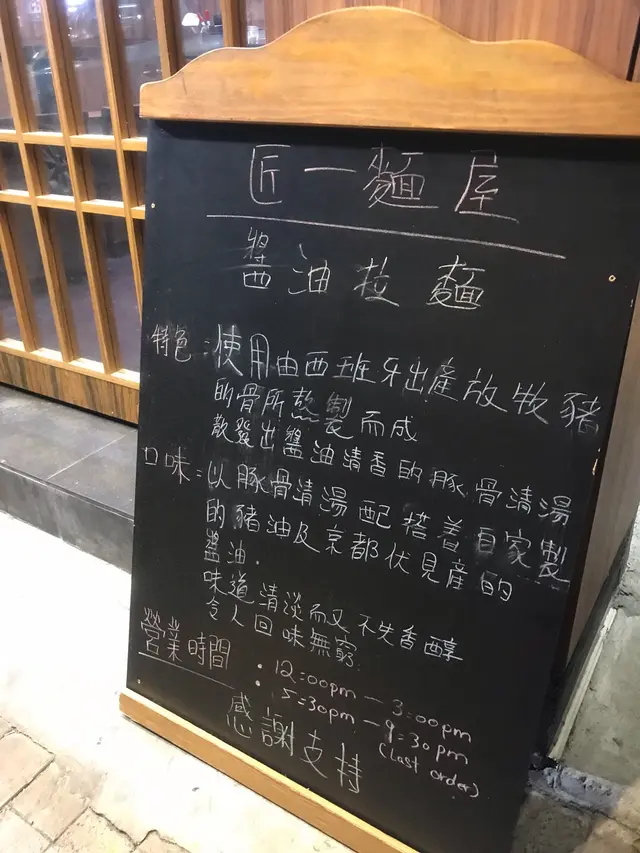 匠一麵屋
醬油拉麵
特色:使用由西班牙出產放牧豬
的骨所熬製而成
散發出醬油清香的豚骨清湯
口味:以豚骨清湯配搭着自家製
的豬油及京都伏見產的
醬油.
味道清淡而又不失香醇
令人回味無窮.
營業時間
• 12:00pm — 3:00pm
• 5:30pm — 9:30pm
(Last order)
感謝支持